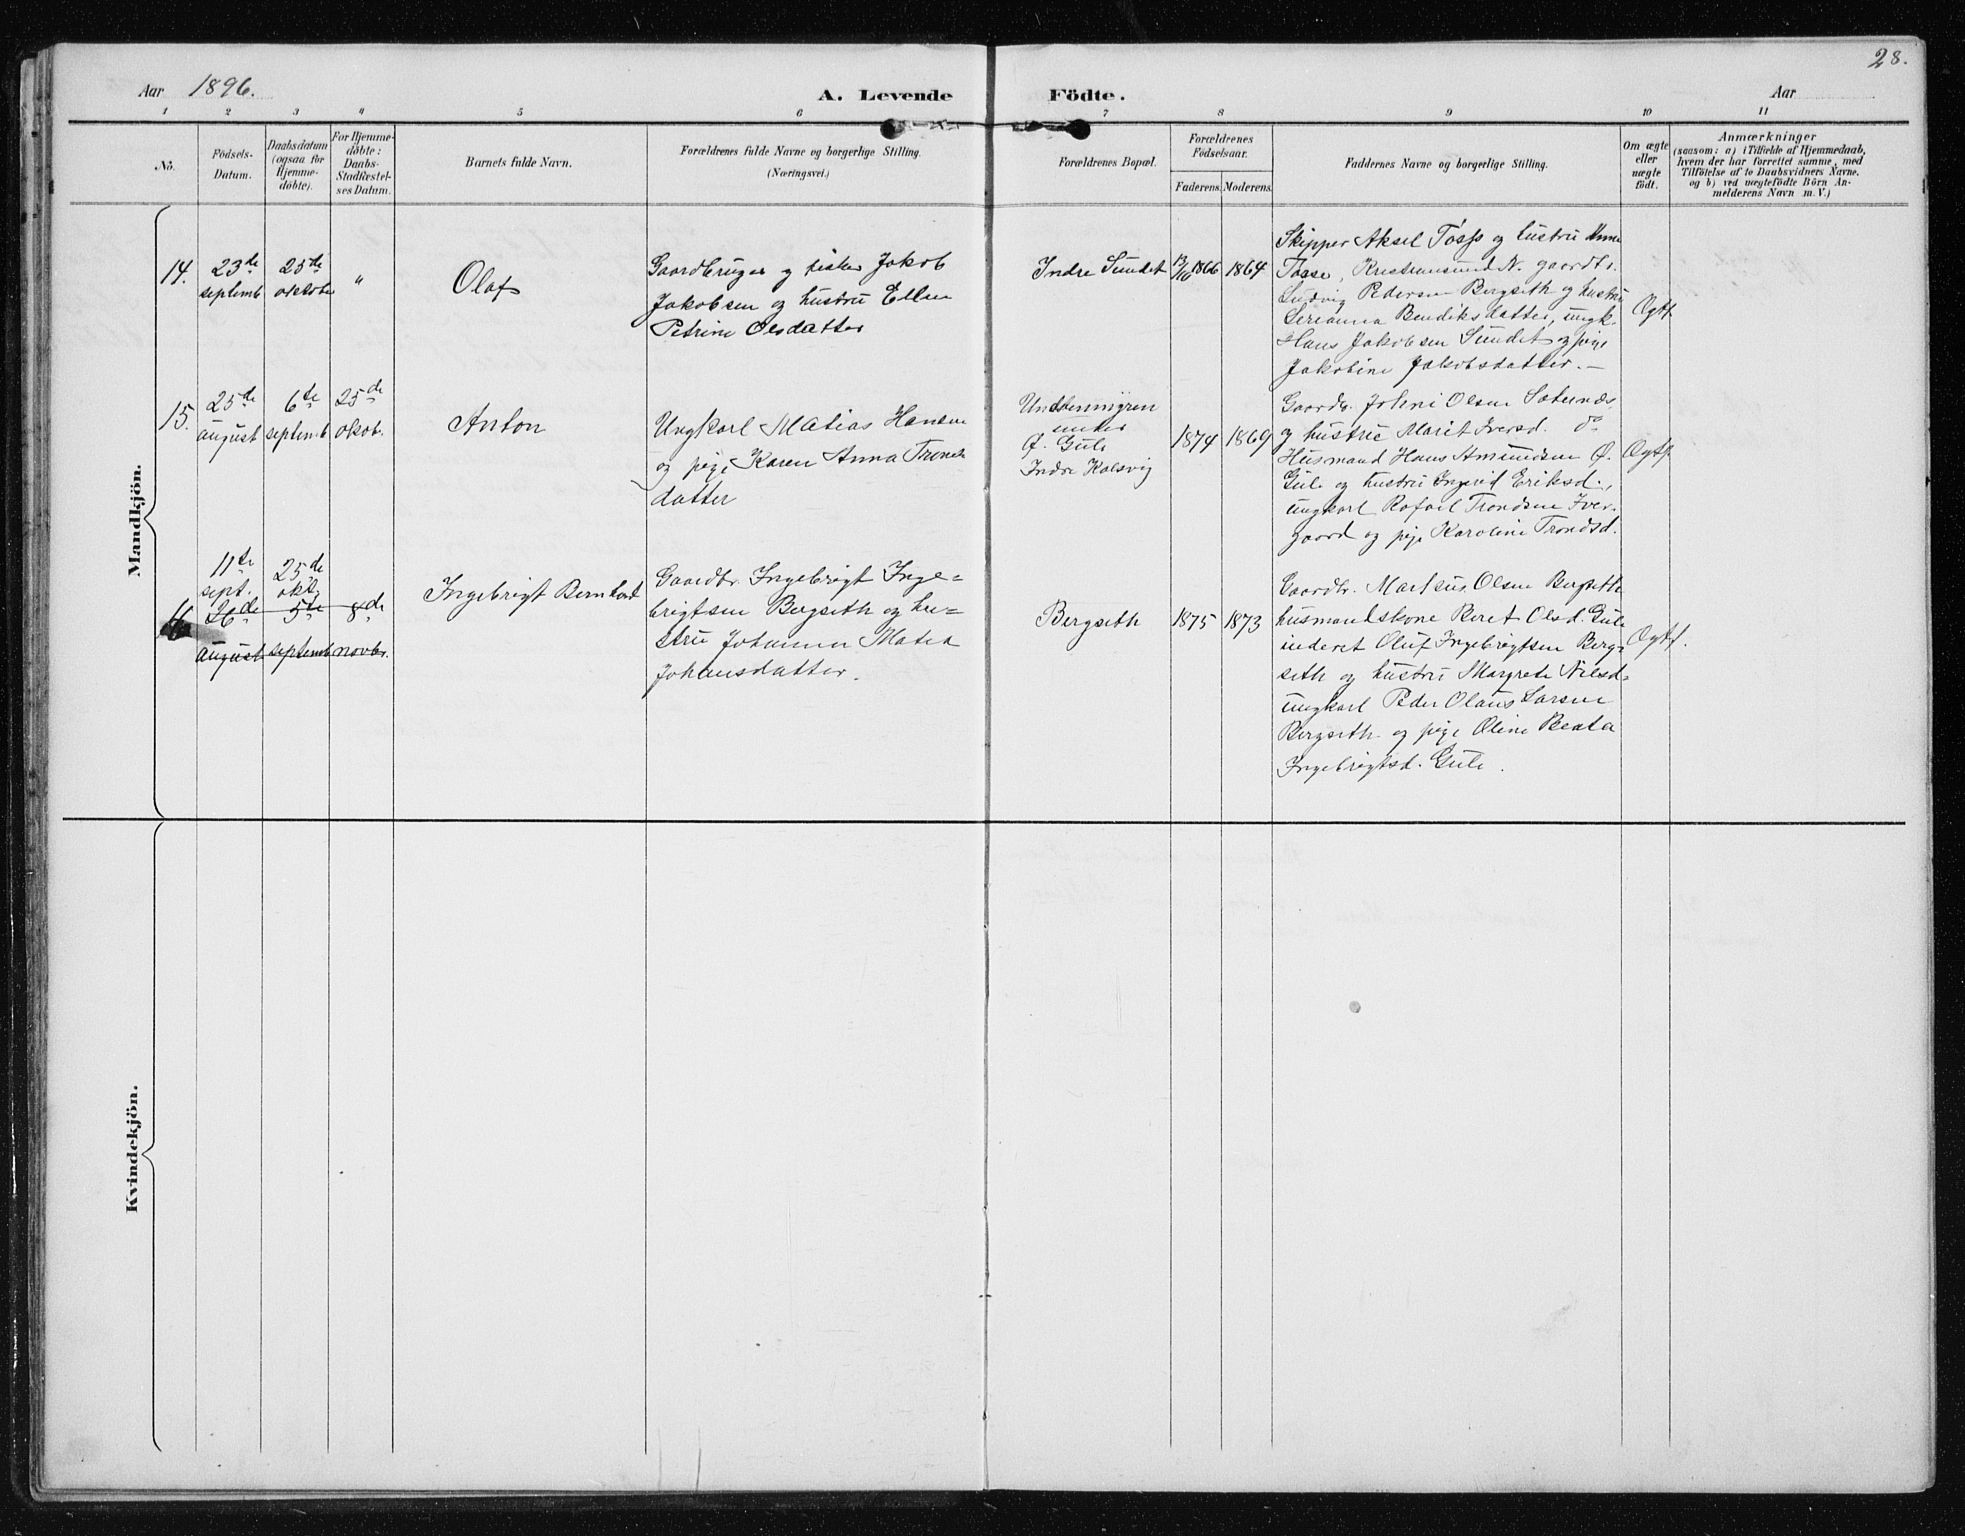 28.
Aar 1896.
A. Levende Födte.
Aar
1 2 3 4 5 6 7 8 9 10 11
No.
Födsels-Datum.
Daabsdatum (ogsaa for Hjemme-döbte).
For Hjemme-döbte: Daabs-Stadfæstel-ses Datum.
Barnets fulde Navn.
Forældrenes fulde Navne og borgerlige Stilling.
(Næringsvei.)
Forældrenes Bopæl.
Forældrenes Födselsaar.
Faderens. Moderens.
Faddernes Navne og borgerlige Stilling.
Om ægte eller uægte födt.
Anmærkninger
(saasom: a) i Tilfælde af Hjemmedaab,
hvem der har forrettet samme, med
Tilföielse af to Daabsvidners Navne,
og b) ved uægtefödte Börn An-
melderens Navn m. V.)
Mandkjön.
14.
23de septemb
25de oktober
"
Olaf
Gaardbruger og fisker Jakob
Jakobsen og hustru Ellen
Petrine Olsdatter
Indre Sundet
13/10 1866
1864
Skipper Aksel Tøsse og hustru Anne
Tøsse, Kristiansund N. gaardbr.
Ludvig Pedersen Bergseth og hustru
Serianna Bendiksdatter, ungk.
Hans Jakobsen Sundet og pige
Jakobine Jakobsdatter. —
Ægtf.
15.
25de august
6te septemb
25de okob.
Anton
Ungkarl Matias Hansen
og pige Karen Anna Trons
datter
under
Ø. Gule
Indre Kalsvig
1874
1869
Gaardbr. Johni Olsen
og hustru Marit Iversd. do
Husmand Hans Amundsen Ø.
Gule og hustru Ingrid Eriksd.,
ungkarl Rafael Trondsen Iver-
gaard og pige Karoline Trondsd.
11te sept.
25de okt.
26de august
5te septemb
8de novbr.
Ingebrigt Bernhard
Gaardbr. Ingebrigt Inge=
brigtsen Bergseth og hu=
stru Johanna Matea
Johansdatter.
Bergseth
1875
1873
Gaardbr. Markus Olsen Bergseth
husmandskone Beret Olsd. Gule
inderst Oluf Ingebrigtsen Berg=
seth og hustru Margrete Nilsd.
ungkarl Peder Olaus Larsen
Bergseth og pige Oline Beata
Ingebrigtsd. Gule.
Ægtf.
Kvindekjön.